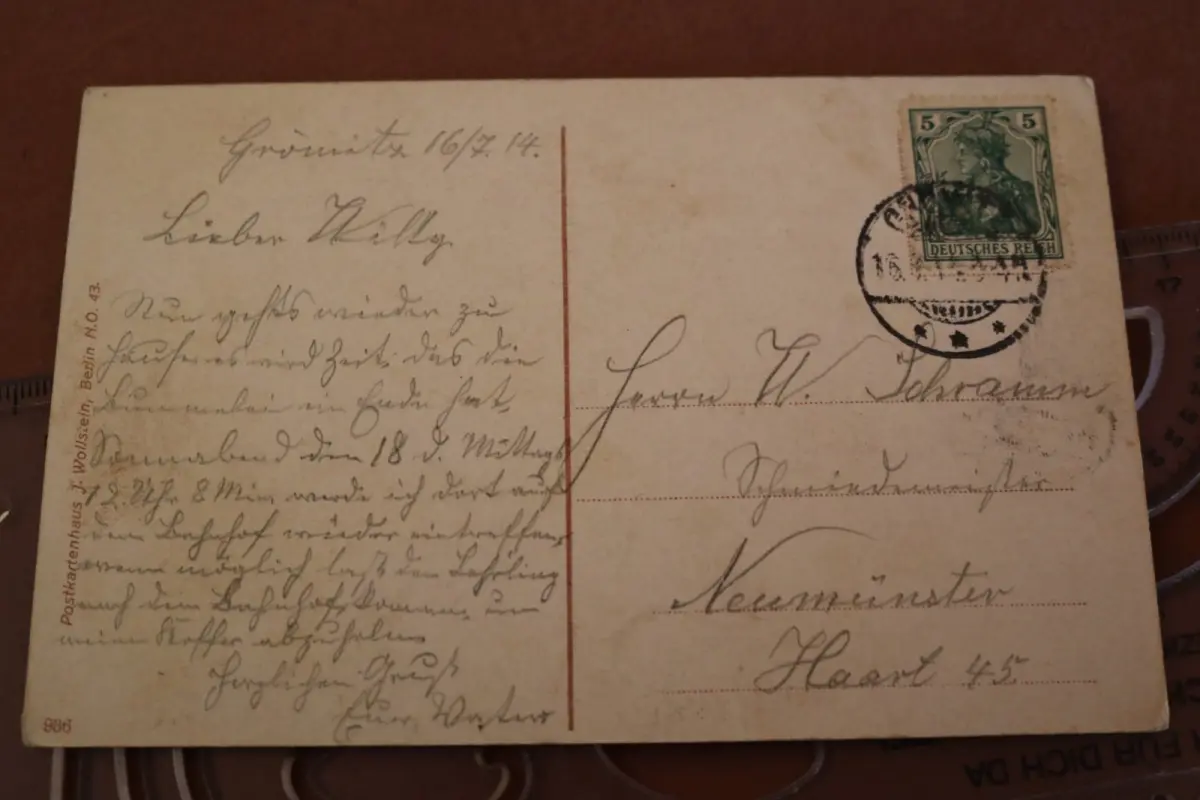 Grömitz 16/7. 14.
Lieber Willy
Nun geht's wieder zu
Hause es wird Zeit das die
Bummelei ein Ende hat.
Sonnabend den 18 d. Mittags
12 Uhr 8 Min werde ich dort auf
dem Bahnhof wieder eintreffen,
wenn möglich lass den Lehrling
nach dem Bahnhof kommen, um
meinen Koffer abzuholen
Herzlichen Gruß
Euer Vater
Postkartenhaus J. Wollstein, Berlin N.O. 43.
986
5 5
DEUTSCHES REICH
16.
Herrn W. Schramm
Schmiedemeister
Neumünster
Haart 45
FÜR DICH DA